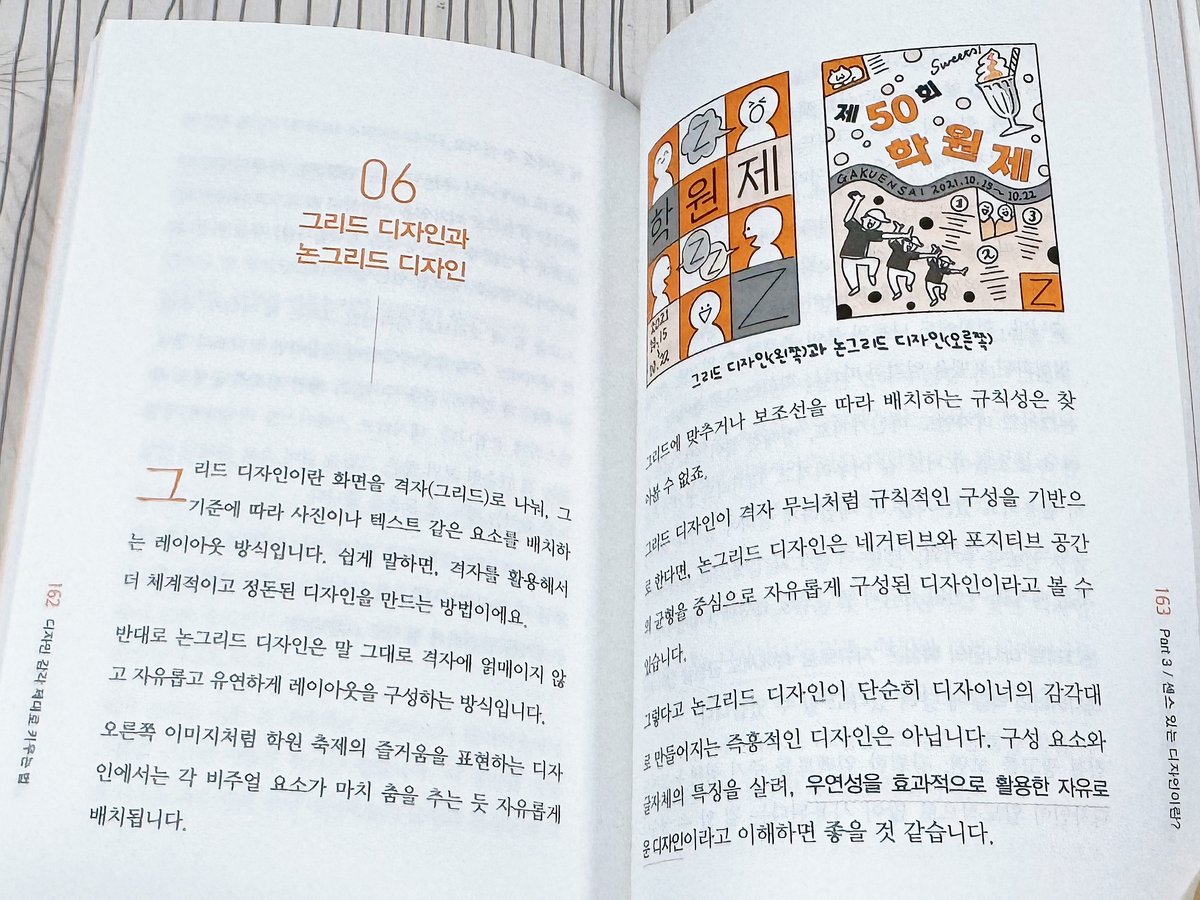 06
그리드 디자인과
논그리드 디자인
그리드 디자인이란 화면을 격자(그리드)로 나눠, 그
기준에 따라 사진이나 텍스트 같은 요소를 배치하
는 레이아웃 방식입니다. 쉽게 말하면, 격자를 활용해서
더 체계적이고 정돈된 디자인을 만드는 방법이에요.
반대로 논그리드 디자인은 말 그대로 격자에 얽매이지 않
고 자유롭고 유연하게 레이아웃을 구성하는 방식입니다.
오른쪽 이미지처럼 학원 축제의 즐거움을 표현하는 디자
인에서는 각 비주얼 요소가 마치 춤을 추는 듯 자유롭게
배치됩니다.
162 디자인 감각 제대로 키우는 법
Z
학원제
ZZ
Z
2021
10.15
10.22
Sweets!
제50회
학원제
GAKUENSAI 2021.10.15~10.22
1
2
3
Z
그리드 디자인(왼쪽)과 논그리드 디자인(오른쪽)
그리드에 맞추거나 보조선을 따라 배치하는 규칙성은 찾
아볼 수 없죠.
그리드 디자인이 격자 무늬처럼 규칙적인 구성을 기반으
로 한다면, 논그리드 디자인은 네거티브와 포지티브 공간
의 균형을 중심으로 자유롭게 구성된 디자인이라고 볼 수
있습니다.
그렇다고 논그리드 디자인이 단순히 디자이너의 감각대
로 만들어지는 즉흥적인 디자인은 아닙니다. 구성 요소와
글자체의 특징을 살려, 우연성을 효과적으로 활용한 자유로
운 디자인이라고 이해하면 좋을 것 같습니다.
163 Part 3 / 센스 있는 디자인이란?